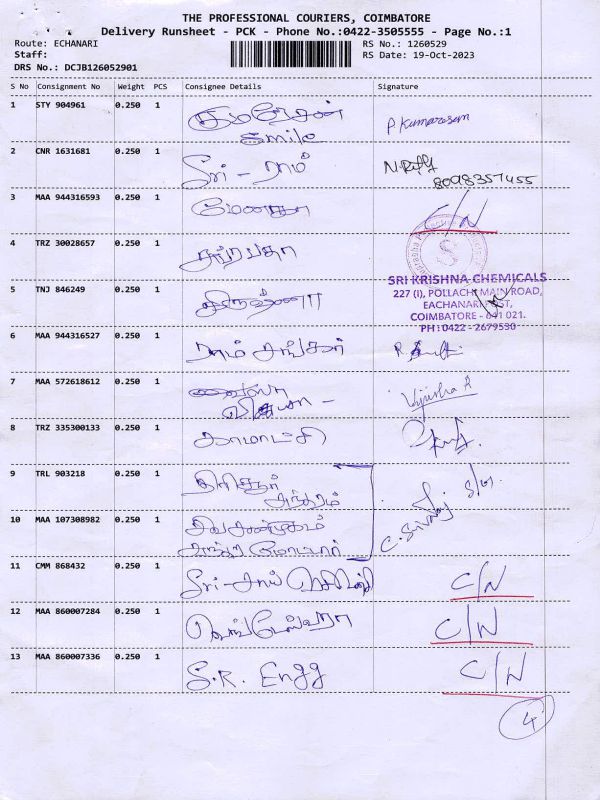 THE PROFESSIONAL COURIERS, COIMBATORE
Delivery Runsheet - PCK - Phone No.:0422-3505555 - Page No.:1
Route: ECHANARI RS No.: 1260529
Staff: RS Date: 19-Oct-2023
DRS No.: DCJB126052901
S No Consignment No Weight PCS Consignee Details Signature
1 STY 904961 0.250 1 குமரேசன் P Kumaresan
Smile
2 CNR 1631681 0.250 1 Sri - ராம்
8098357455
3 MAA 944316593 0.250 1 மேனகா C/N
4 TRZ 30028657 0.250 1
SRI KRISHNA CHEMICALS
227 (I), POLLACHI MAIN ROAD,
5 TNJ 846249 0.250 1 கிருஷ்ணா EACHANARI POST,
COIMBATORE - 641 021.
PH : 0422 - 2679530
6 MAA 944316527 0.250 1 ராம் சங்கர்
7 MAA 572618612 0.250 1
8 TRZ 335300133 0.250 1 காமாட்சி
9 TRL 903218 0.250 1
10 MAA 107308982 0.250 1 சிவசண்முகம்
11 CMM 868432 0.250 1 Sri - சாய் C/N
12 MAA 860007284 0.250 1 வெங்டேஸ்வரா C/N
13 MAA 860007336 0.250 1 S.R. Engg C/N
4